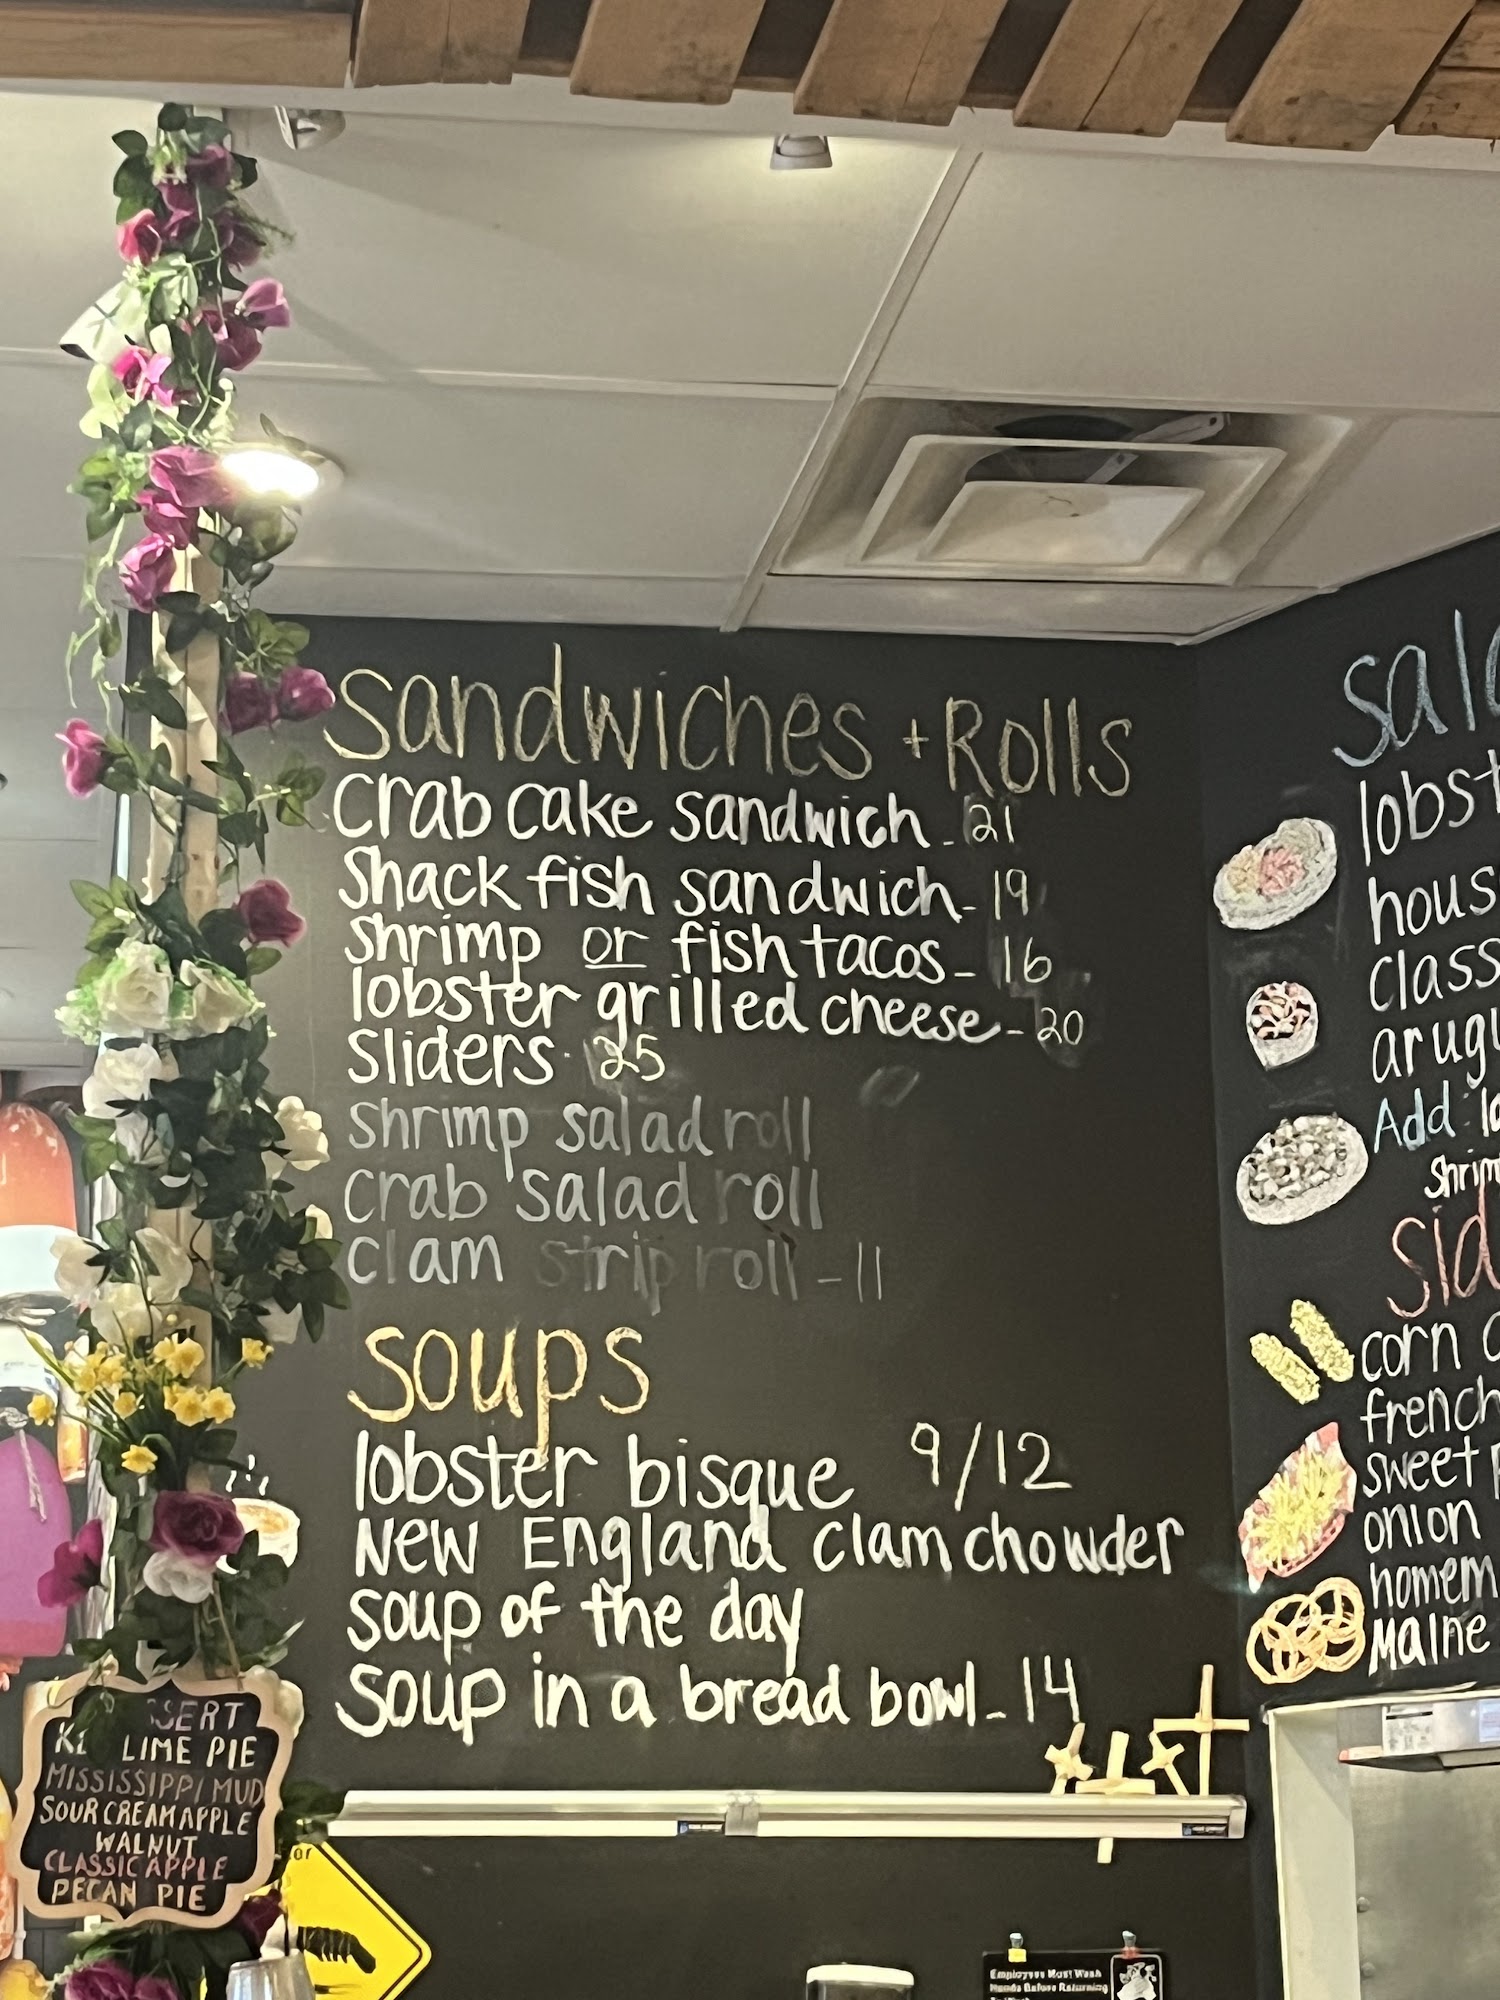 Sandwiches + Rolls
Crab cake sandwich - 21
Shack fish sandwich - 19
Shrimp or fish tacos - 16
lobster grilled cheese - 20
Sliders - 25
Shrimp salad roll
Crab salad roll
clam strip roll - 11
Soups
lobster bisque 9/12
New England clam chowder
Soup of the day
Soup in a bread bowl - 14
Add
Shrim
corn
french
sweet
onion
Maine
LIME PIE
MISSISSIPPI MUD
SOUR CREAM APPLE
WALNUT
CLASSIC APPLE
PECAN PIE
Employees Must Wash
Hands Before Returning